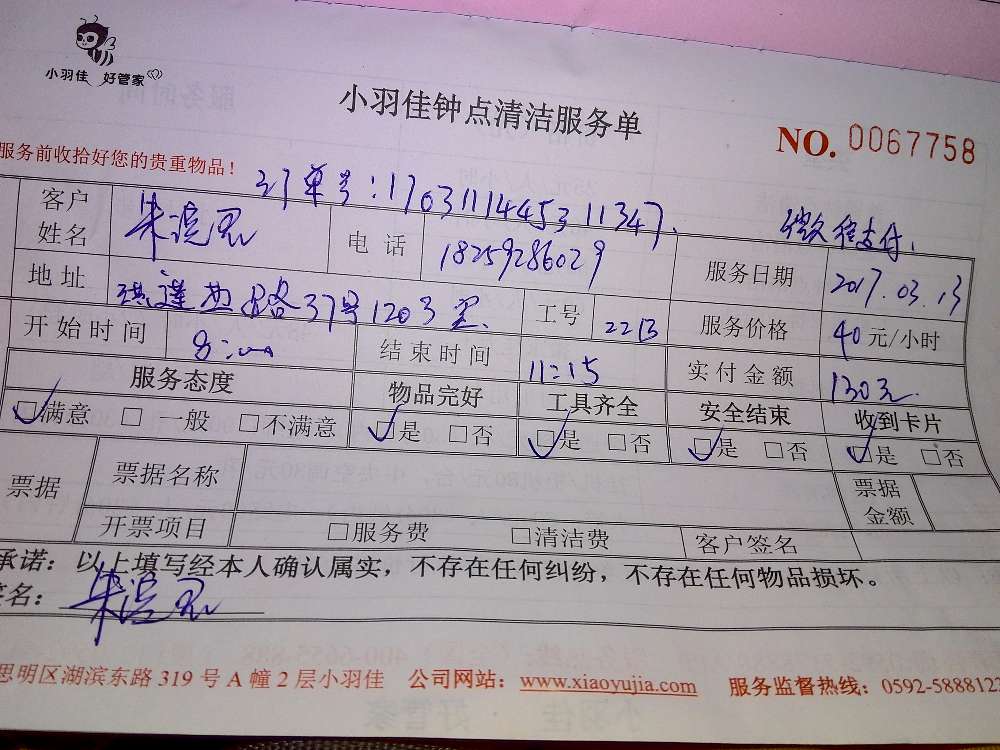 小羽佳 好管家
小羽佳钟点清洁服务单
NO. 0067758
服务前收拾好您的贵重物品！
订单号：1703111445311347
微信支付
客户姓名 朱 电话 18259286029 服务日期 2017.03.13
地址 莲西路37号1203室 工号 服务价格 40元/小时
开始时间 8:00 结束时间 11:15 实付金额 130元
服务态度 物品完好 工具齐全 安全结束 收到卡片
☑满意 □一般 □不满意 ☑是 □否 ☑是 □否 ☑是 □否 ☑是 □否
票据 票据名称 票据金额
开票项目 □服务费 □清洁费 客户签名
承诺：以上填写经本人确认属实，不存在任何纠纷，不存在任何物品损坏。
签名：朱
思明区湖滨东路319号A幢2层小羽佳 公司网站：www.xiaoyujia.com 服务监督热线：0592-5888123